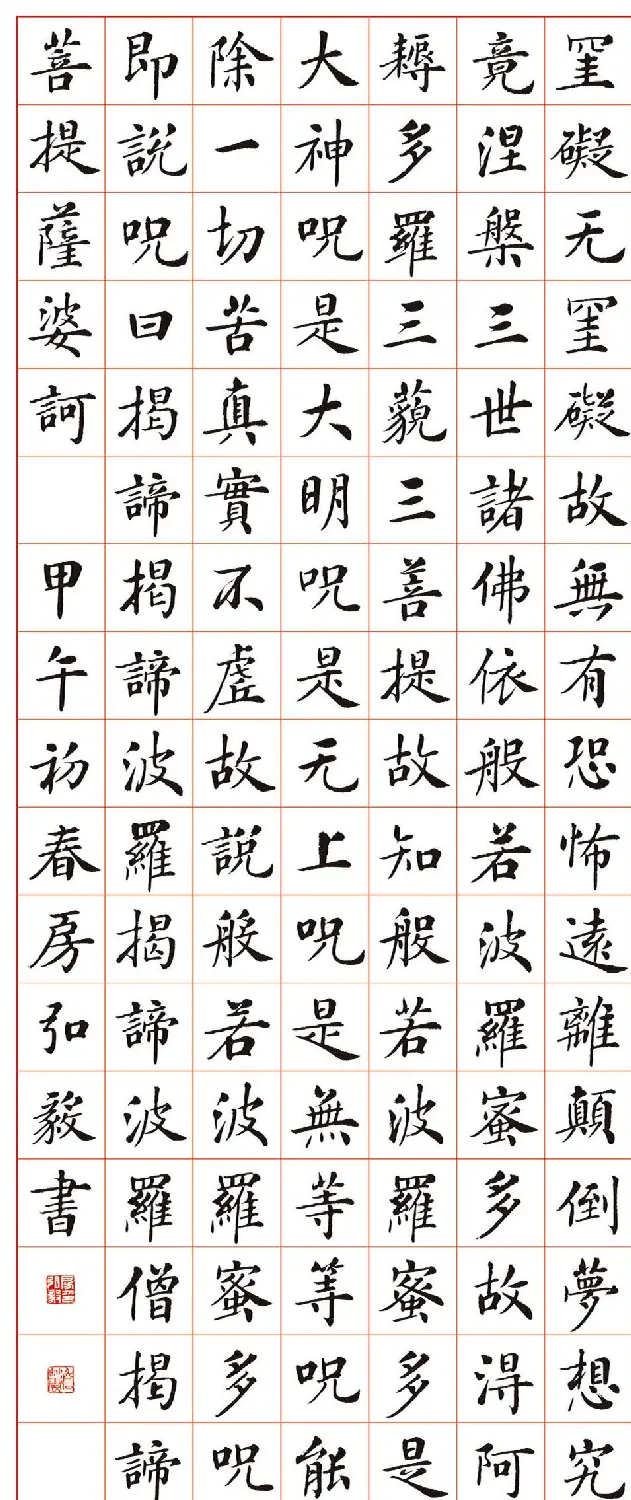 罣礙无罣礙故無有恐怖遠離顛倒夢想究
竟涅槃三世諸佛依般若波羅蜜多故得阿
耨多羅三藐三菩提故知般若波羅蜜多是
大神呪是大明呪是无上呪是無等等呪能
除一切苦真實不虛故說般若波羅蜜多呪
即說呪曰揭諦揭諦波羅揭諦波羅僧揭諦
菩提薩婆訶 甲午初春房弘毅書